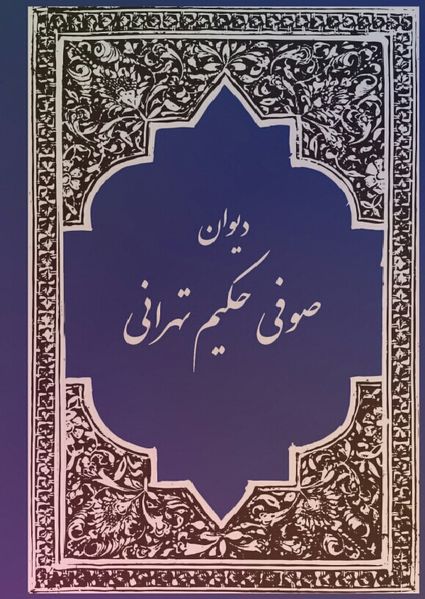 دیوان
صوفی حکیم تهرانی